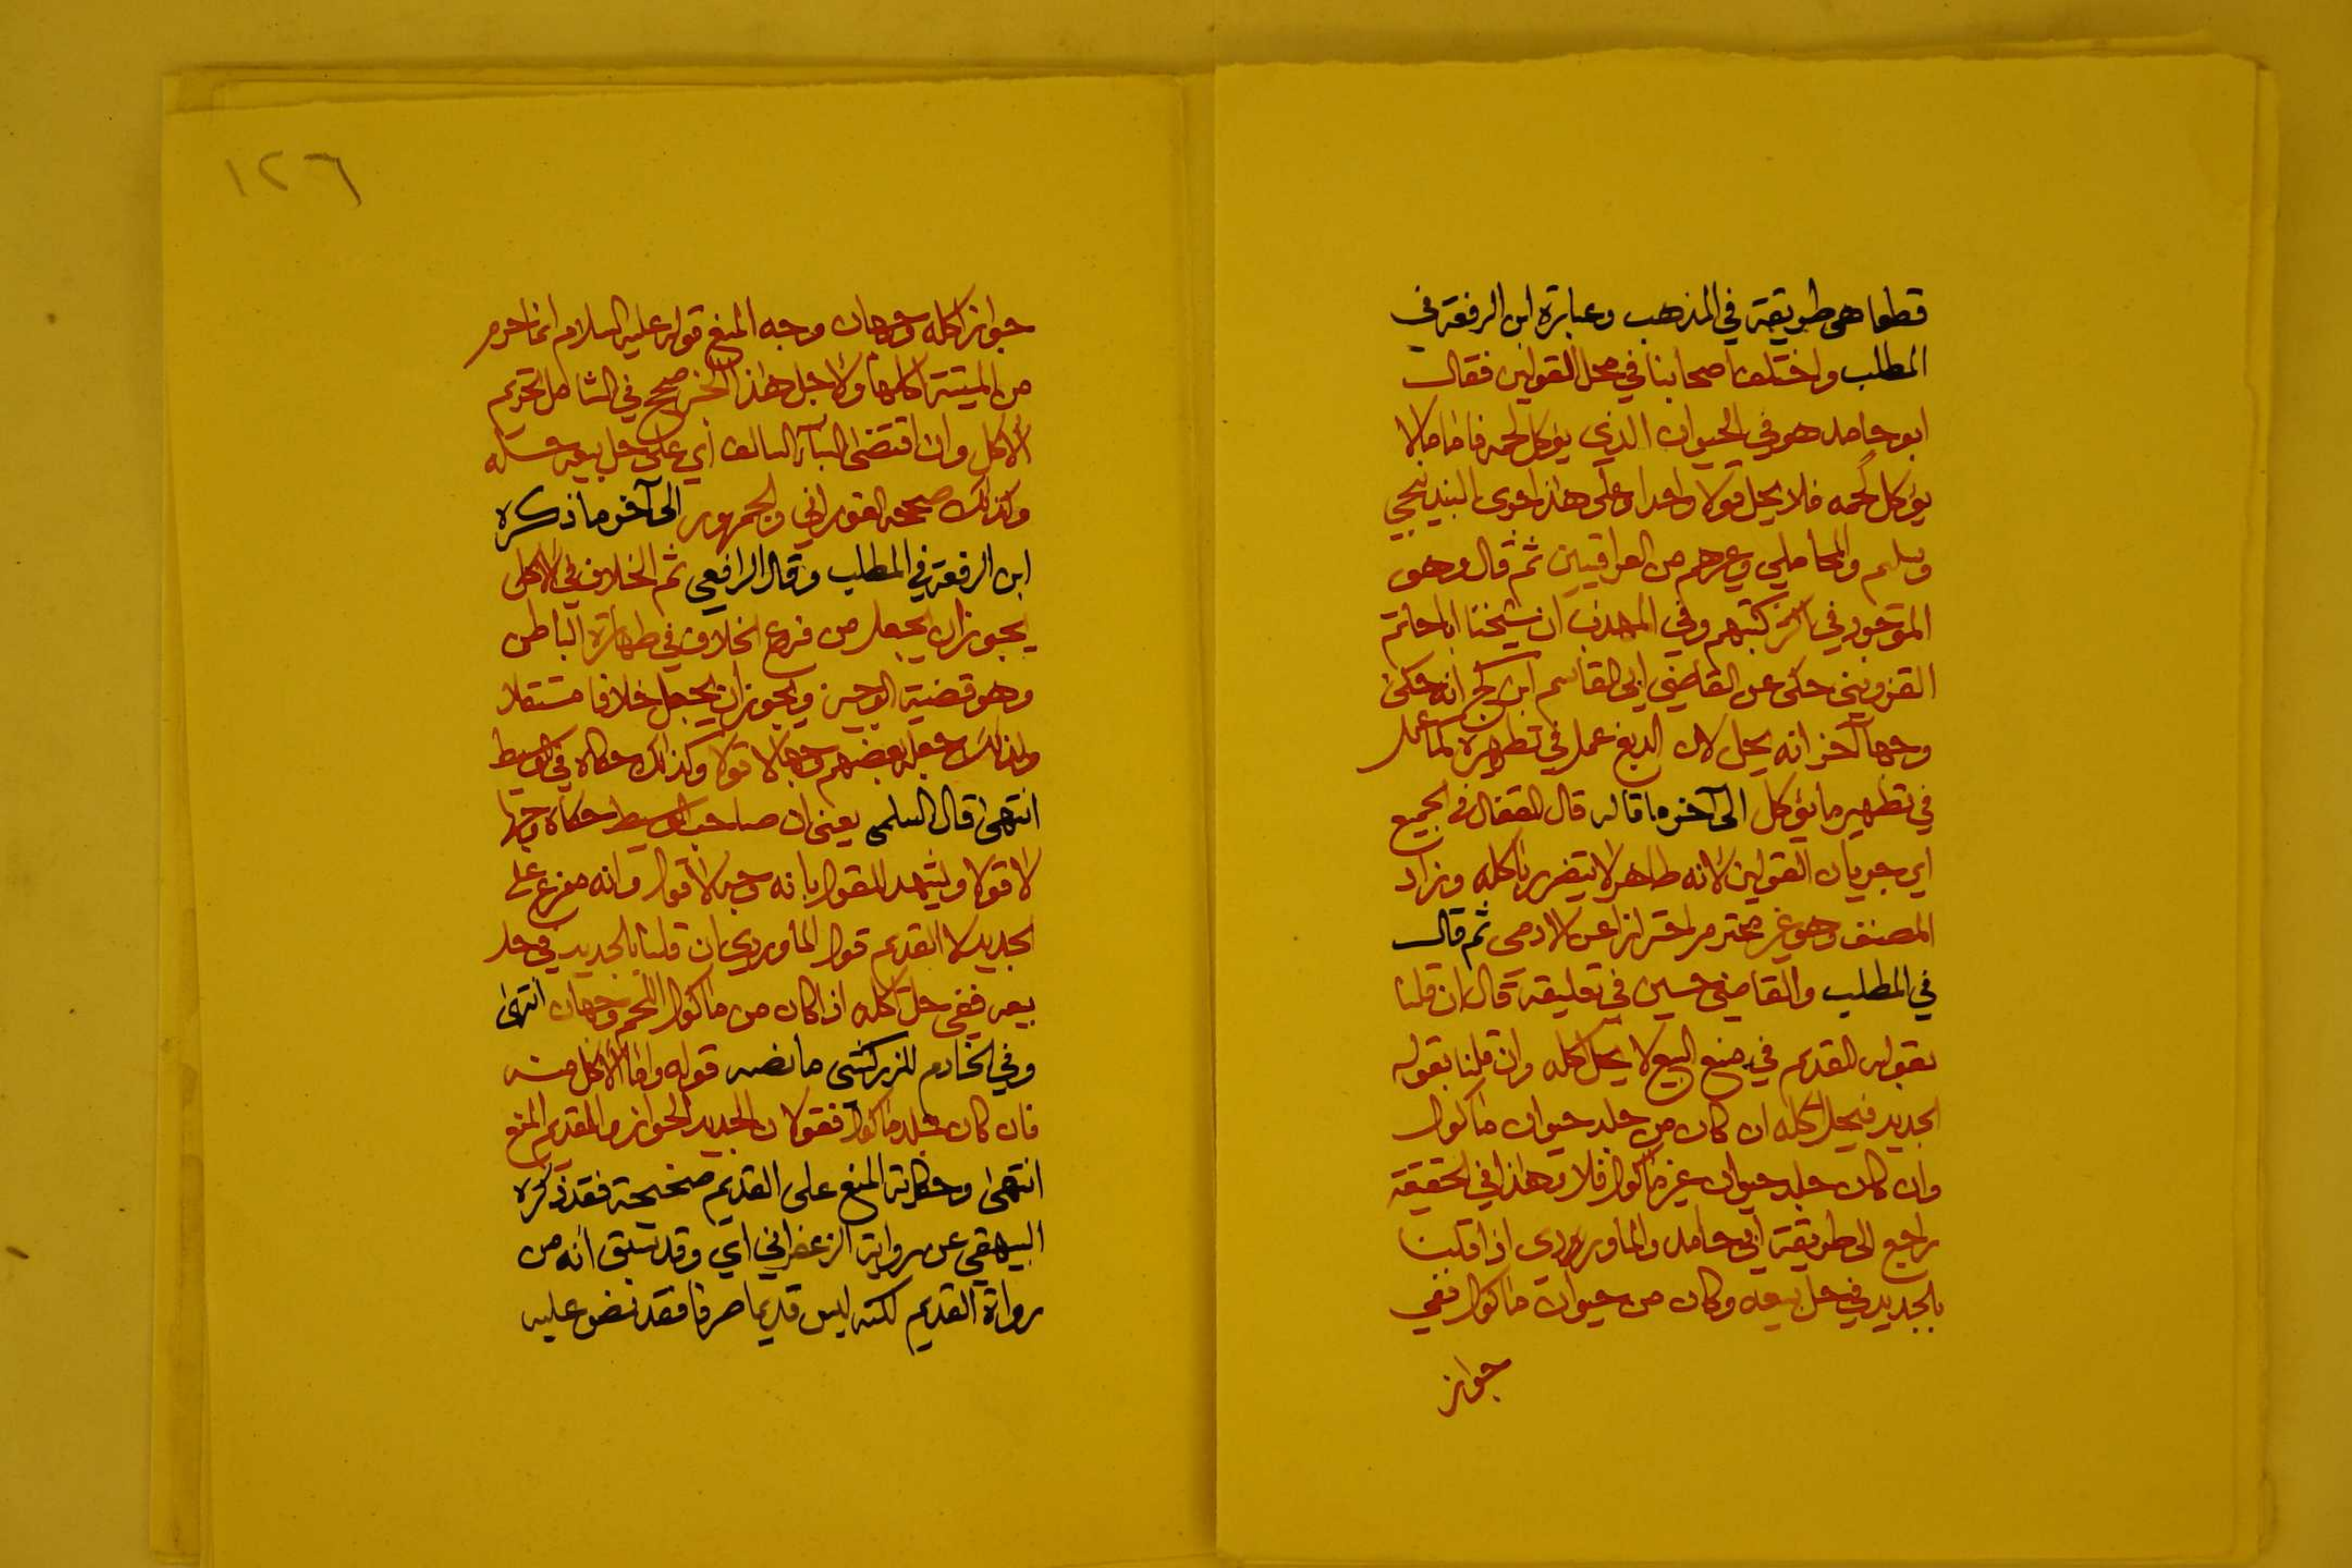 قطعا هى طريقة في المذهب وعبارة ابن الرفعة في
المطلب واختلف اصحابنا في محل القولين فقال
ابو حامد هو في الحيوان الذي يؤكل لحمه فاما ما لا
يؤكل لحمه فلا يحل قولا واحدا وعلى هذا جرى البندنيجي
وسليم والمحاملي وغيرهم من العراقيين ثم قال وهو
الموجود في اكثر كتبهم وفي المهذب ان شيخنا اباحاتم
القزويني حكى عن القاضي ابي القاسم ابن كج انه حكى
وجها آخر انه يحل لان الدبغ عمل في تطهيره كما عمل
في تطهير ما يؤكل الى آخر ما قاله قال القفال في الجميع
اي جريان القولين لانه طاهر لا يتضرر باكله وزاد
المصنف وهو غير محترم احترازا عن الادمى ثم قال
في المطلب والقاضي حسين في تعليقه قال ان قلنا
بقوله القديم في منع البيع لا يحل اكله وان قلنا بقوله
الجديد فيحل اكله ان كان من جلد حيوان ماكول
وان كان جلد حيوان غير ماكول فلا وهذا في الحقيقة
راجع الى طريقة ابي حامد والماوردي اذا قلنا
بالجديد في حل بيعه وكان من حيوان ماكول ففي
جواز
١٢٦
جواز اكله وجهان وجه المنع قوله عليه السلام انما حرم
من الميتة اكلها ولاجل هذا الخبر صحح في الشامل تحريم
الاكل وان اقتضى البناء السالف اي على حل بيعه حله
وكذلك صححه الفوراني والجمهور الى آخر ما ذكره
ابن الرفعة في المطلب وقال الرافعي ثم الخلاف في الاكل
يجوز ان يجعل من فروع الخلاف في طهارة الباطن
وهو قضية الوجيز ويجوز ان يجعل خلافا مستقلا
ولذلك جعله بعضهم وجها لا قولا وكذلك حكاه في الوسيط
انتهى قال السلمى يعنى ان صاحب الوسيط حكاه وجها
لا قولا ويشهد للقول بانه وجه لا قول وانه مفرع على
الجديد لا القديم قول الماوردي ان قلنا بالجديد في حل
بيعه ففي حل اكله اذا كان من ماكول اللحم وجهان انتهى
وفي الخادم للزركشى ما نصه قوله واما الاكل منه
فان كان جلد ماكول فقولان الجديد الجواز والقديم المنع
انتهى وحكاية المنع على القديم صحيحة فقد ذكره
البيهقي عن رواية الزعفراني اي وقد سبق انه من
رواة القديم لكنه ليس قديما صرفا فقد نص عليه